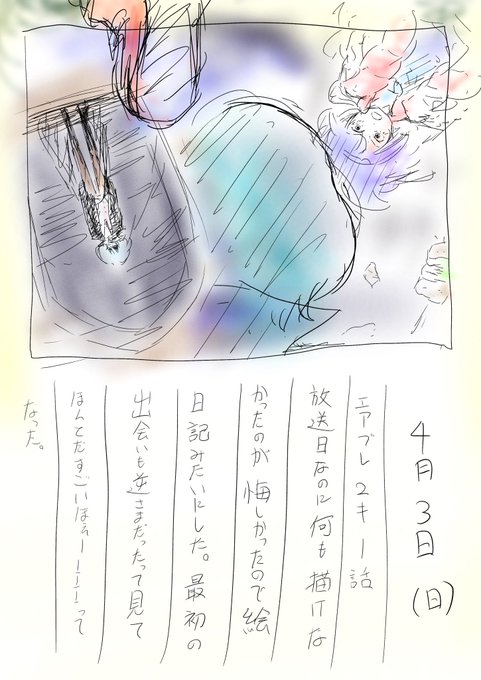 4月3日(日)
エアブレ2キ一話
放送日なのに何も描けな
かったのが悔しかったので絵
日記みたいにした。最初の
出会いも逆さまだったって見て
ほんとだすごいほえーーーーって
なった。